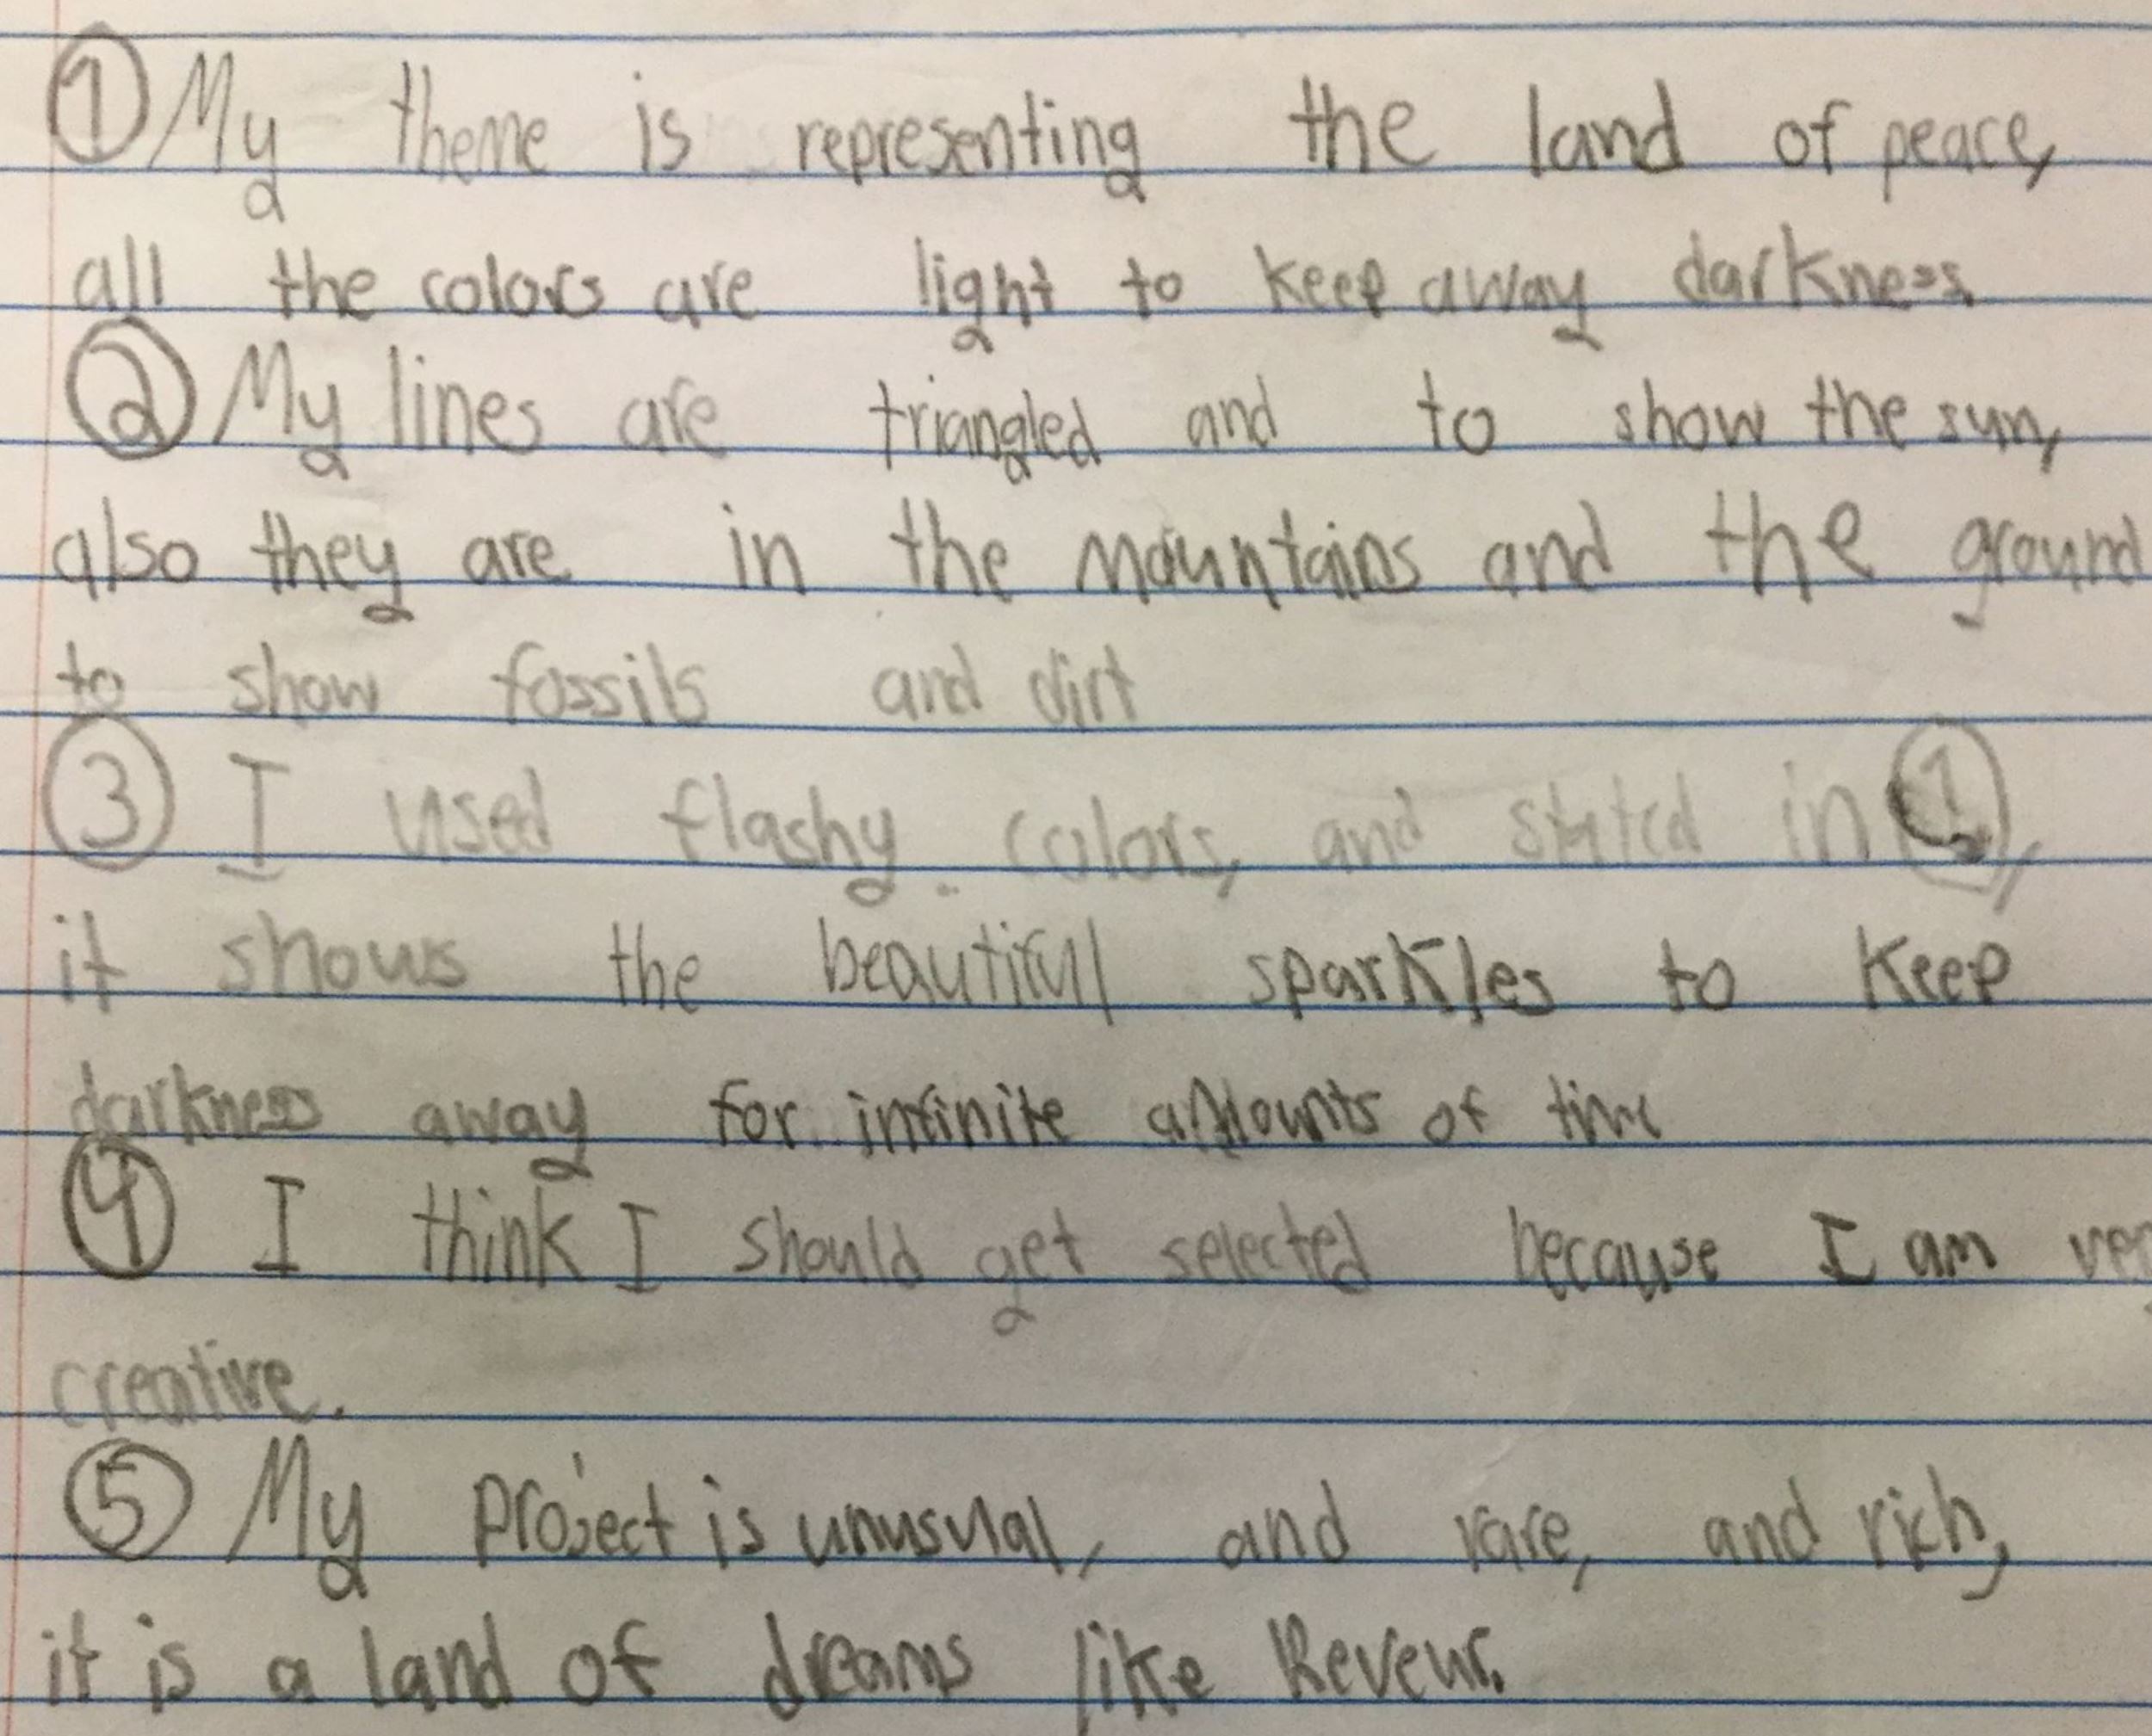 ① My theme is representing the land of peace,
all the colors are light to keep away darkness
② My lines are triangled and to show the sun,
also they are in the mountains and the ground
to show fossils and dirt
③ I used flashy colors, and stated in ①,
it shows the beautifull sparkles to keep
darkness away for infinite amounts of time
④ I think I should get selected because I am
creative.
⑤ My project is unusual, and rare, and rich,
it is a land of dreams like Reveur.